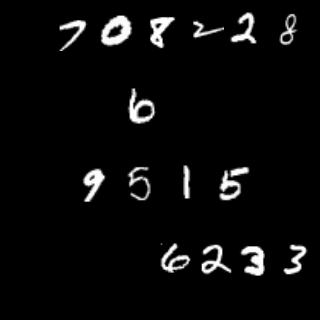 708228
6
9515
6233